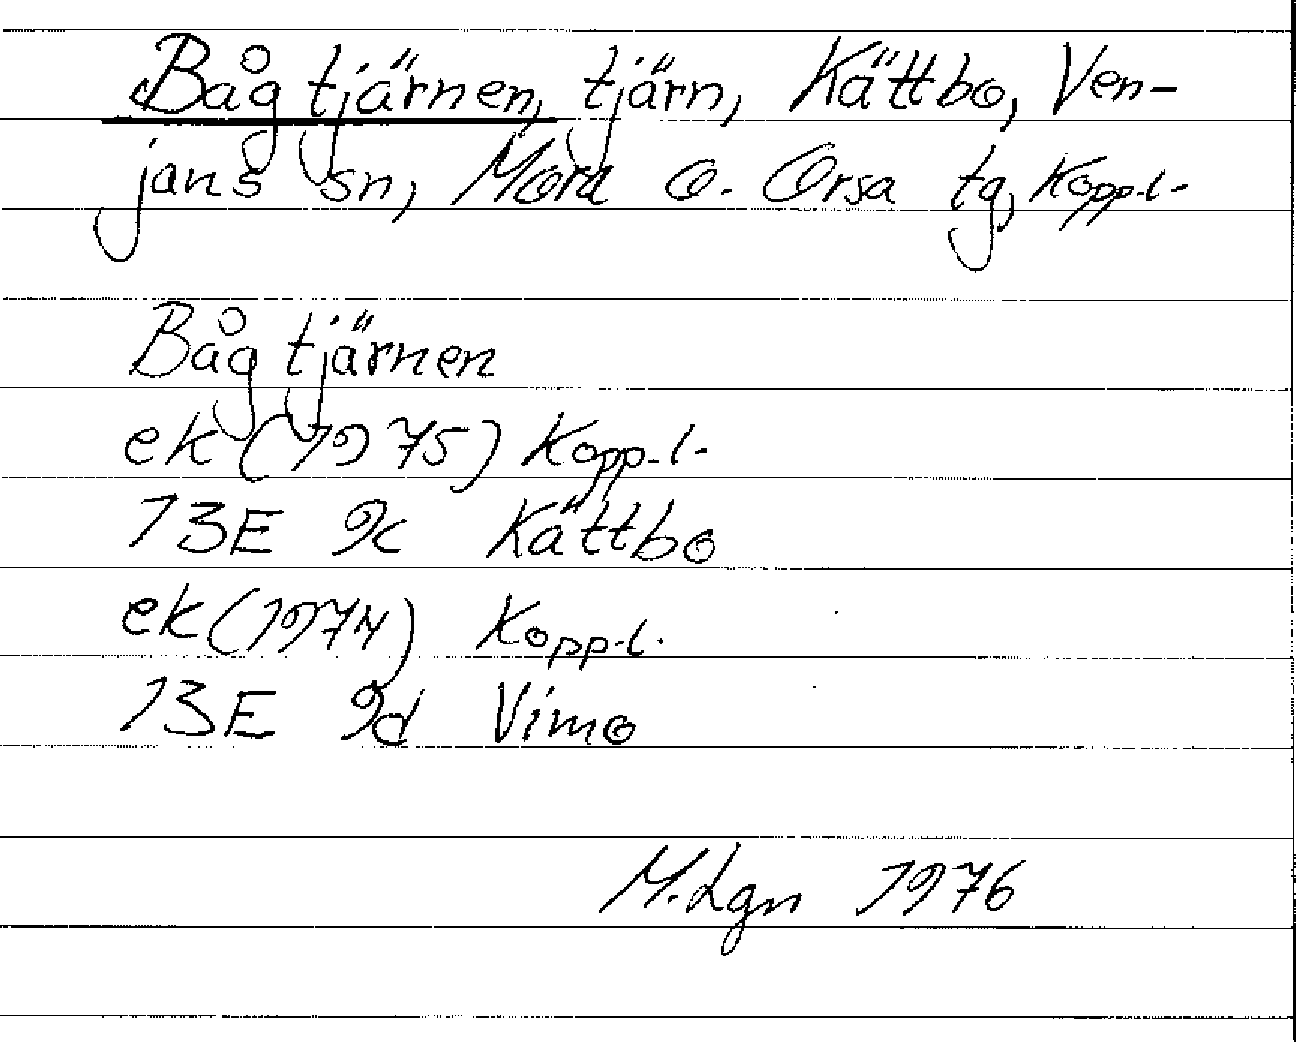 Bågtjärnen, tjärn, Kättbo, Ven-
jans sn, Mora o. Orsa tg, Kopp.l.
Bågtjärnen
ek (1975) Kopp.l.
13E 9c Kättbo
ek (1974) Kopp.l.
13E 9d Vimo
M.Lgn 1976